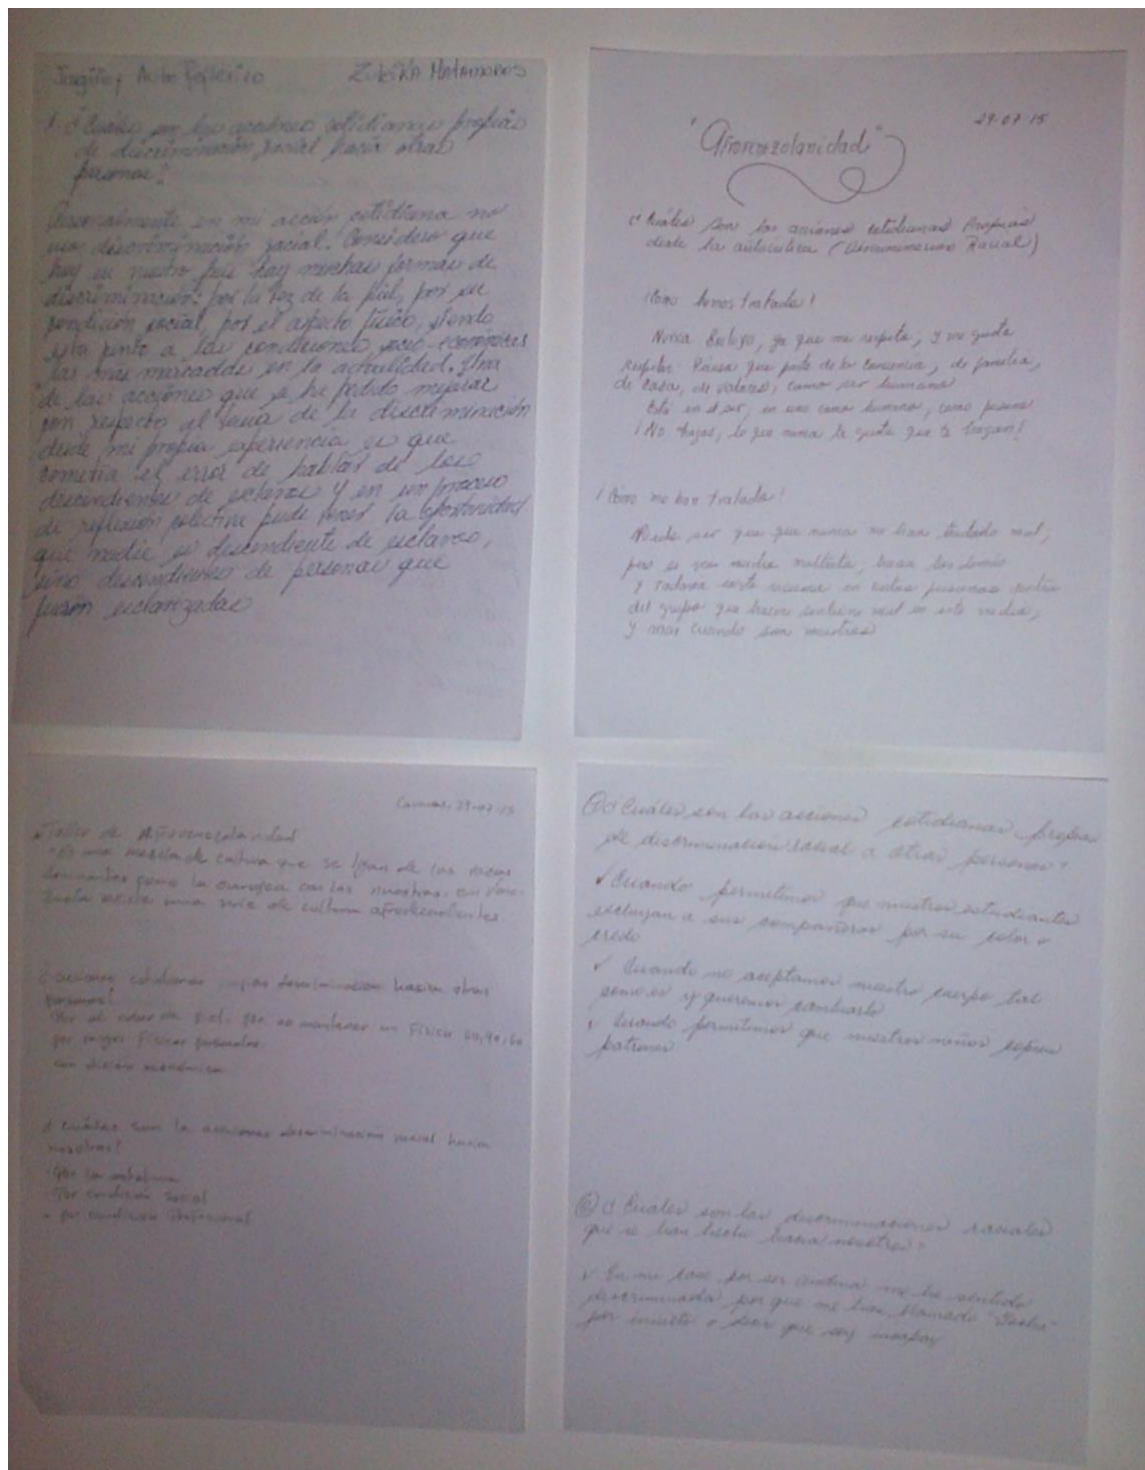 Auto Reflexivo ZULEIKA MATAMOROS
1. ¿Cuáles son las acciones cotidianas propias
de discriminación racial hacia otras
personas?
Personalmente en mi acción cotidiana no
uso discriminación racial. Considero que
hoy en nuestro país hay muchas formas de
discriminación: por la tez de la piel, por su
condición social, por el aspecto físico, siendo
esta junto a las condiciones socio-económicas
las más marcadas en la actualidad. Una
de las acciones que yo he podido mejorar
con respecto al tema de la discriminación
desde mi propia experiencia es que
cometía el error de hablar de los
descendientes de esclavos y en un proceso
de reflexión colectiva pude tener la oportunidad
que nadie es descendiente de esclavos,
sino descendientes de personas que
fueron esclavizadas
29-07-15
"Afrovenezolanidad"
¿Cuáles son las acciones cotidianas Propias
desde la autocrítica (Discriminación Racial)
¡Cómo hemos tratado!
Nunca ya que me respeto, y me gusta
respetar. Pienso que parte de la conciencia, de familia,
de casa, de valores, como ser humano
Está en el ser, en uno como humano, como persona
¡No hagas, lo que nunca te gusta que te hagan!
¡Cómo me han tratado!
Puede ser que que nunca me han tratado mal,
pero si
y todavía existe racismo en personas dentro
del grupo que hacen sentirse mal en este medio,
y mas cuando son maestras
Caracas, 29-07-15
Taller de Afrovenezolanidad
Es una mezcla de cultura que se ligan de las razas
dominantes como la europea con las nuestras. en Vene-
zuela existe una serie de cultura afrodecendientes
¿acciones cotidianas discriminación hacia otras
personas?
Por el color de piel, por no mantener un Físico 60,90,60
por rasgos Físicos personales.
condición económica
¿Cuáles son la acciones discriminación racial hacia
nosotros?
- Por la estatura
- Por condición social
- por condición Profesional
① ¿Cuáles son las acciones cotidianas propias
de discriminación racial a otras personas?
✓ Cuando permitimos que nuestros estudiantes
excluyan a sus compañeros por su color o
credo
✓ Cuando no aceptamos nuestro cuerpo tal
como es y queremos cambiarlo
✓ Cuando permitimos que nuestros niños copien
patrones
② ¿Cuáles son las discriminaciones raciales
que se han hecho hacia nosotros?
✓ En mi caso por ser andina me he sentido
discriminada por que me han llamado
por insulto o decir que soy incapaz